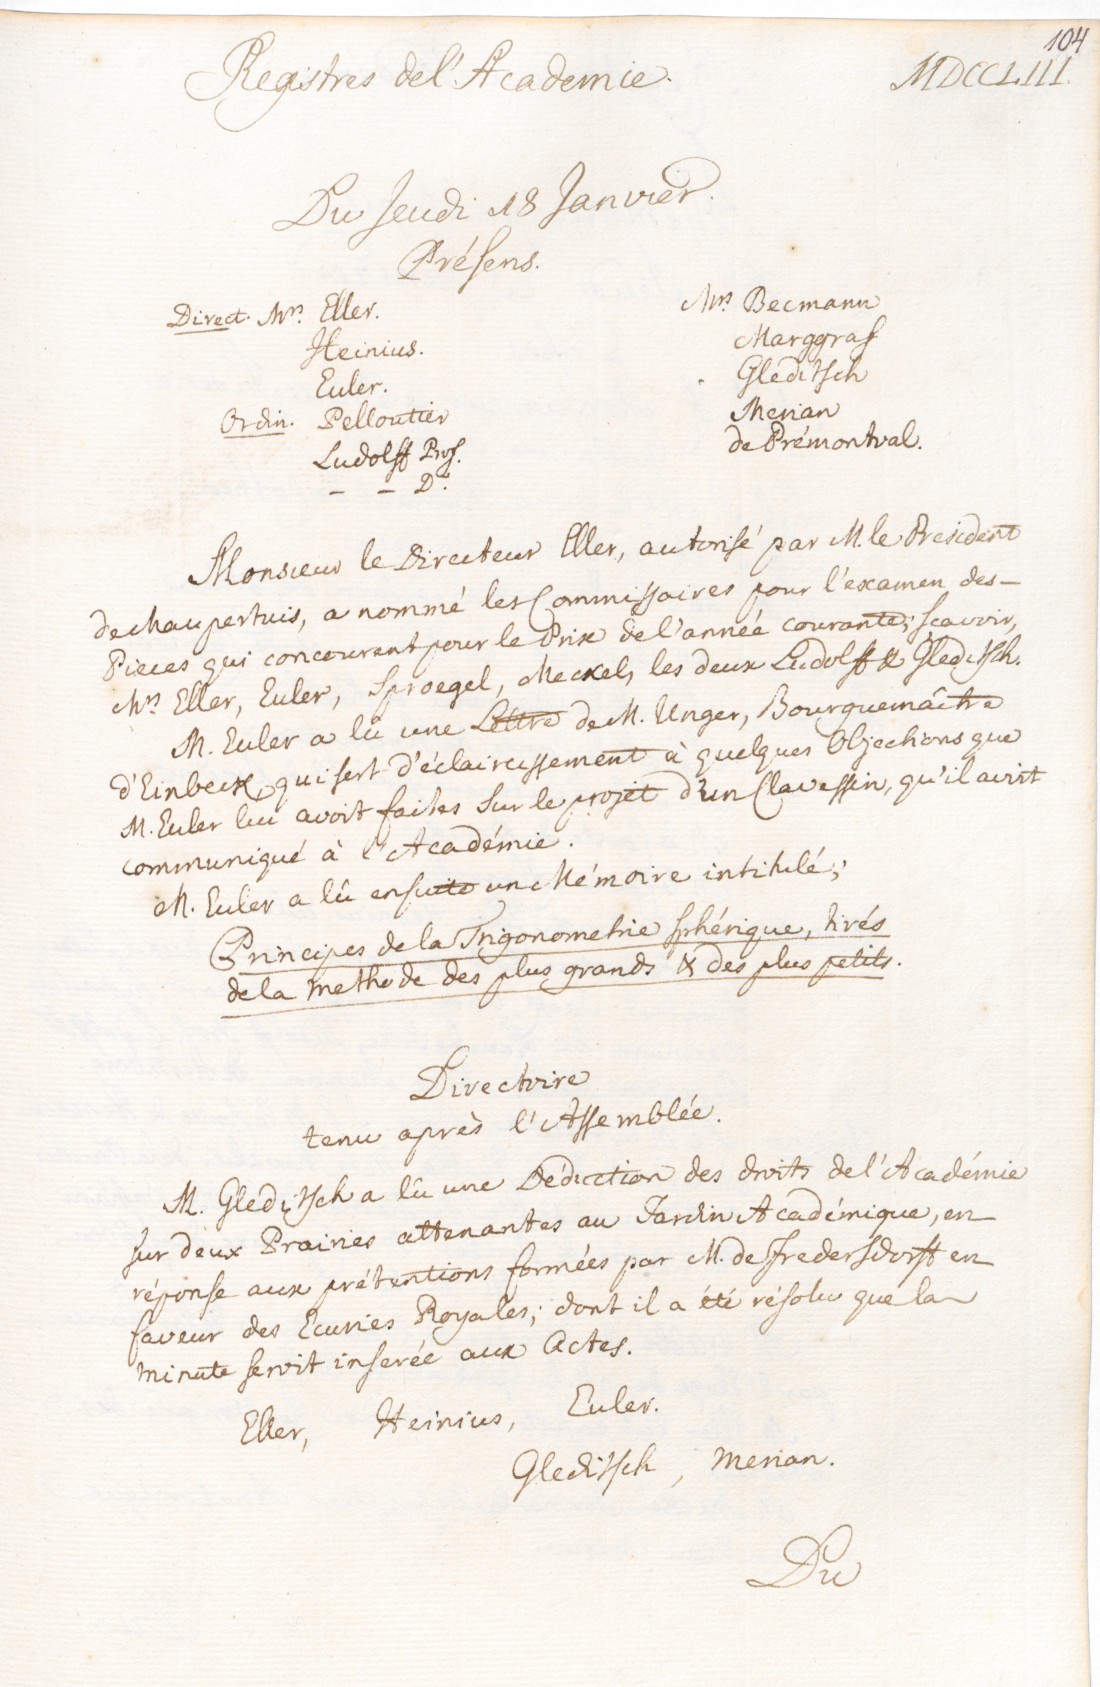 104
Registres de l'Academie. MDCCLIII.
Du Jeudi 18 Janvier.
Présens.
Direct. Mrs. Eller.
Heinius.
Euler.
Ordin. Pelloutier
Ludolff Prof.
— — Dr.
Mrs. Becmann
Marggraf
Gleditsch
Merian
de Prémontval.
Monsieur le Directeur Eller, autorisé par M. le President
de Maupertuis, a nommé les Commissaires pour l'examen des
Pieces qui concourent pour le Prix de l'année courante; scavoir,
Mrs Eller, Euler, Sproegel, Meckel, les deux Ludolff & Gleditsch.
M. Euler a lû une Lettre de M. Unger, Bourguemaître
d'Einbeck, qui sert d'éclaircissement à quelques Objections que
M. Euler lui avoit faites sur le projet d'un Clavessin, qu'il avoit
communiqué à l'Académie.
M. Euler a lû ensuite un Mémoire intitulé;
Principes de la Trigonometrie sphérique, tirés
de la methode des plus grands & des plus petits.
Directoire
tenu après l'Assemblée.
M. Gleditsch a lû une Déduction des droits de l'Académie
sur deux Prairies attenantes au Jardin Académique, en
réponse aux prétentions formées par M. de Fredersdorff en
faveur des Ecuries Royales; dont il a été résolu que la
minute seroit inserée aux Actes.
Eller, Heinius, Euler.
Gleditsch, Merian.
Du